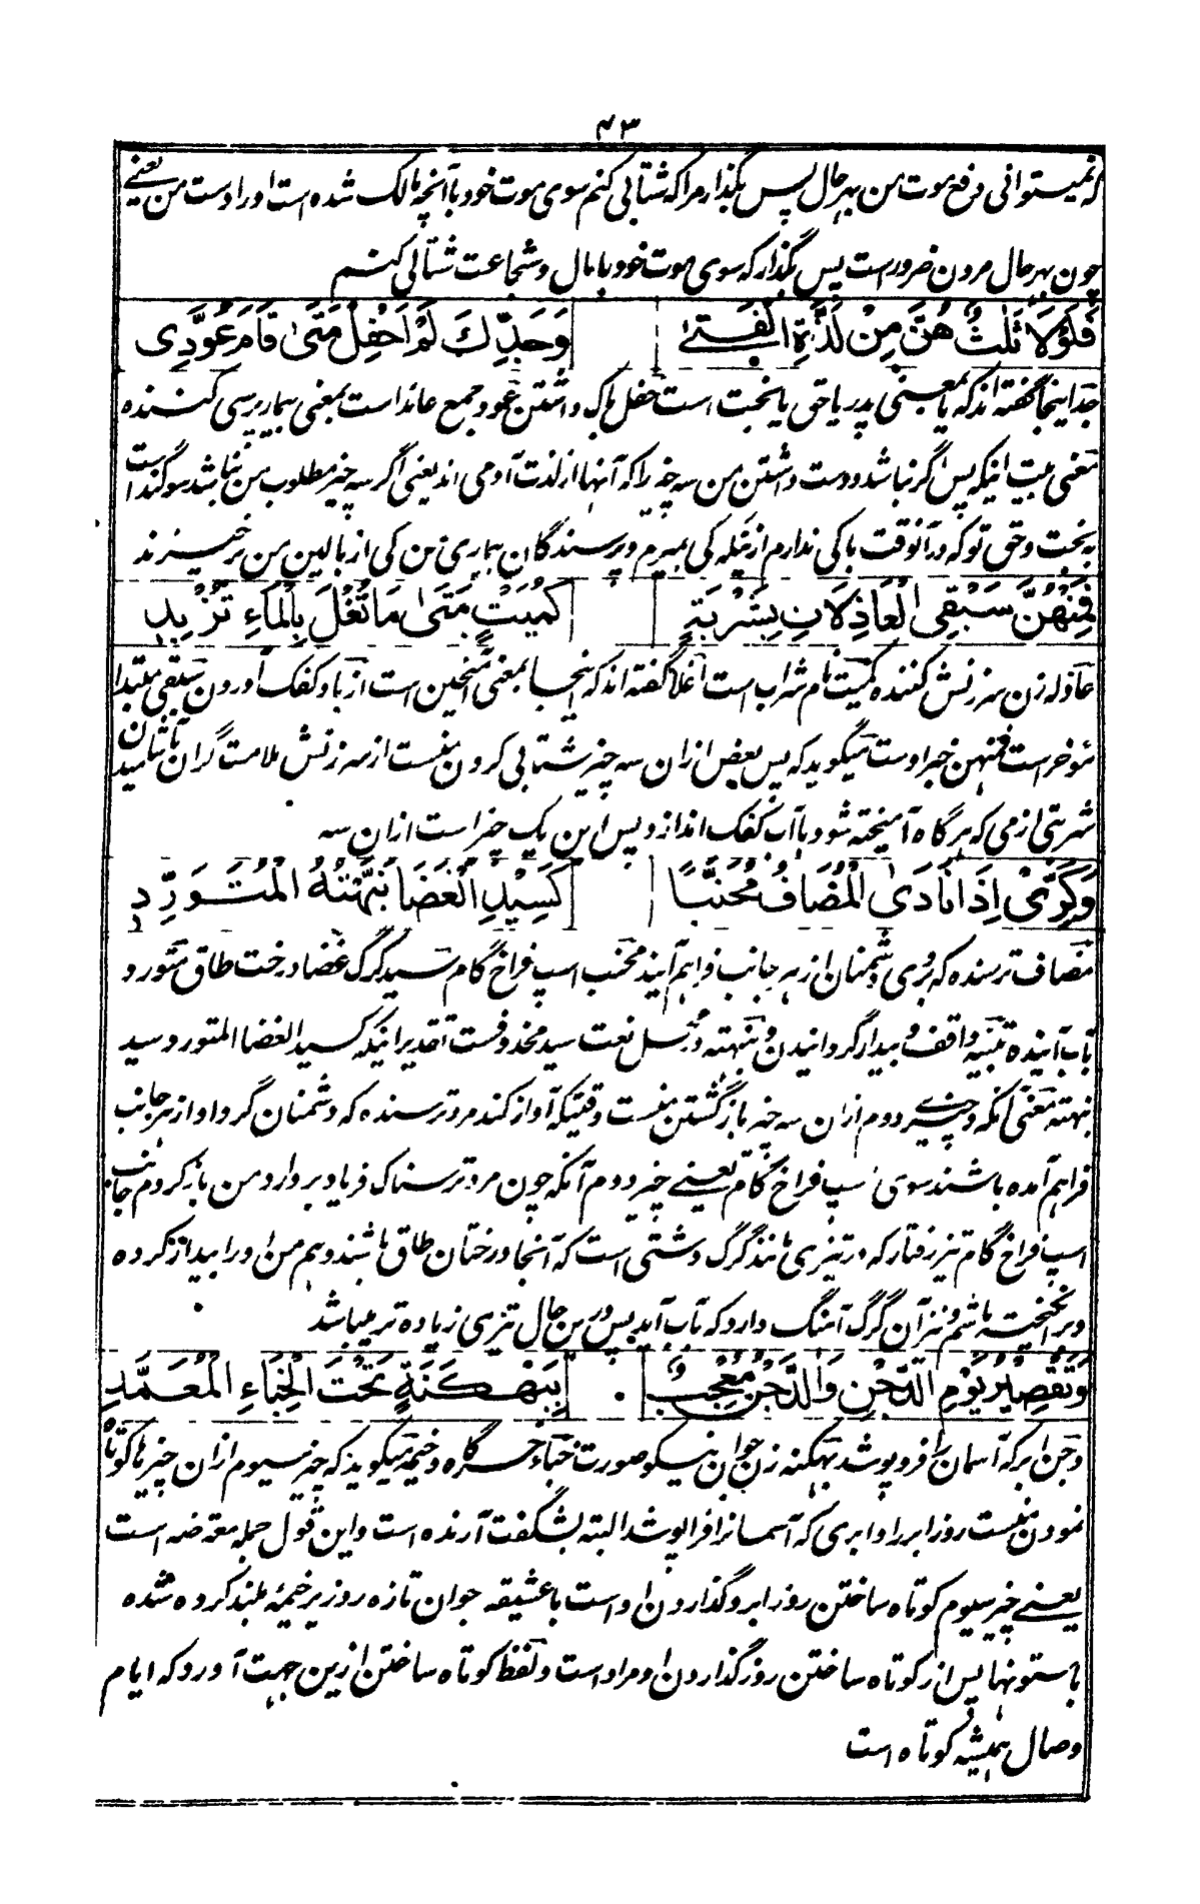 ۴۳
که نمیتوانی دفع موت من بهر حال پس بگذار مرا که شتابی کنم سوی موت خود با آنچه مالک شده است اورا دست من یعنے
چون بهر حال مردن ضرورست پس بگذار که سوی موت خود با مال و شجاعت شتابی کنم
فَلَوْلَا ثَلٰثٌ هُنَّ مِنْ لَذَّةِ الْفَتٰے وَجَدِّكَ لَمْ اَحْفِلْ مَتٰی قَامَ عُوَّدِی
جد اینجا گفته اند که یا بمعنی پدر یا حق یا بخت است حفل باک داشتن عود جمع عائد است بمعنی بیمار پرسی کننده
معنی بیت اینکه پس اگر نباشد دوست داشتن من سه چیز را که آنها از لذت آدمی اند یعنی اگر سه چیز مطلوب من نباشد سوگند است
به بخت و حق تو که در آنوقت باکی ندارم از ینکه کی بمیرم و پرسندگان بیماری من کی از بالین من برخیزند
فَمِنْهُنَّ سَبْقِی الْعَاذِلَاتِ بِشَرْبَةٍ كُمَيْتٍ مَتٰی مَا تُغْلَ بِالْمَاءِ تُزْبِدِ
عاذله زن سرزنش کننده کمیت نام شراب است اغلا گفته اند که اینجا بمعنی آمیختن است ازباد کفک آوردن سبقی مبتدا
مؤخر است فمنهن خبر اوست میگوید که پس بعض ازان سه چیز شتابی کردن منست از سرزنش ملامت گران با شامیدن
شربتی از می که هرگاه آمیخته شود با آب کفک اندازد پس این یک چیز است ازان سه
وَكَرِّیْ اِذَا نَادَی الْمُضَافُ مُحَنَّبًا كَسِيْدِ الْغَضَا نَبَّهْتَهُ الْمُتَوَرِّدِ
مضاف ترسنده که بروی دشمنان از هر جانب فراهم آیند محنب اسپ فراخ گام سید گرگ غضا درخت طاق متورد
بآب آینده تنبیه واقف و بیدار گردانیدن و نبهته در محل نعت سید محذوفست تقدیر اینکه کسید الغضا المتورد سید
نبهته معنی آنکه و چیزے دوم ازان سه چیز باز گشتن منست وقتیکه آواز کند مرد ترسنده که دشمنان گرد او از هر جانب
فراهم آمده باشند سوی اسپ فراخ گام یعنے چیز دوم آنکه چون مرد ترسناک فریاد بر دارد من باز کردم جانب
اسپ فراخ گام تیز رفتار که در تیزی مانند گرگ دشتی است که آنجا درختان طاق باشند و هم من او را بیدار کرده
و برانگیخته باشم و نیز آن گرگ آهنگ دارد که بآب آید پس درین حال تیزی زیاده تر میباشد
وَتَقْصِيْرُ يَوْمِ الدَّجْنِ وَالدَّجْنُ مُعْجِبٌ بِبَهْكَنَةٍ تَحْتَ الْخِبَاءِ الْمُعَمَّدِ
دجن ابر که آسمان را فرو پوشد بهکنه زن جوان نیکو صورت خباء خرگاه و خیمه میگوید که چیز سیوم ازان چیزها کوتاه
نمودن منست روز ابر را و ابری که آسمانرا فرا پوشد البته بشگفت آرنده است و این قول جمله معترضه است
یعنے چیز سیوم کوتاه ساختن روز ابر و گذاردن اوست با عشیقه جوان تازه رو زیر خیمهٔ بلند کرده شده
با ستونها پس از کوتاه ساختن روز گذاردن او مراد است و لفظ کوتاه ساختن ازین جهت آورد که ایام
وصال همیشه کوتاه است